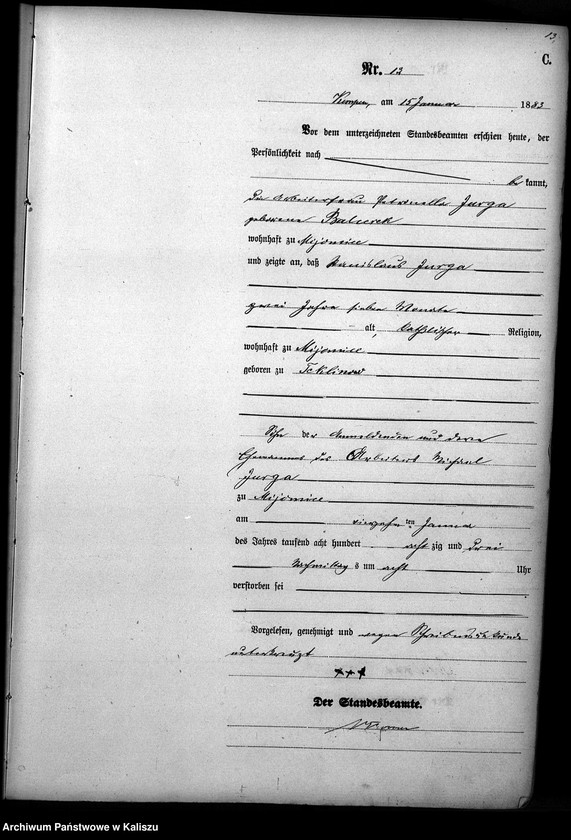 13
C.
Nr. 12
Kempen, am 15 Januar 1883
Vor dem unterzeichneten Standesbeamten erschien heute, der
Persönlichkeit nach
be kannt,
die Arbeiterfrau Petronella Jurga
geborene
wohnhaft zu Mijomice
und zeigte an, daß Stanislaus Jurga
zwei Jahre sieben Monate
alt, katholischer Religion,
wohnhaft zu Mijomice
geboren zu Teklinow
Sohn der Anmeldenden und deren
Ehemannes des Arbeiters Michael
Jurga
zu Mijomice
am vierzehnten Januar
des Jahres tausend acht hundert achtzig und drei
Nachmittags um acht Uhr
verstorben sei
Vorgelesen, genehmigt und wegen Schreibunkunde
unterkreuzt
+++
Der Standesbeamte.
Archiwum Państwowe w Kaliszu